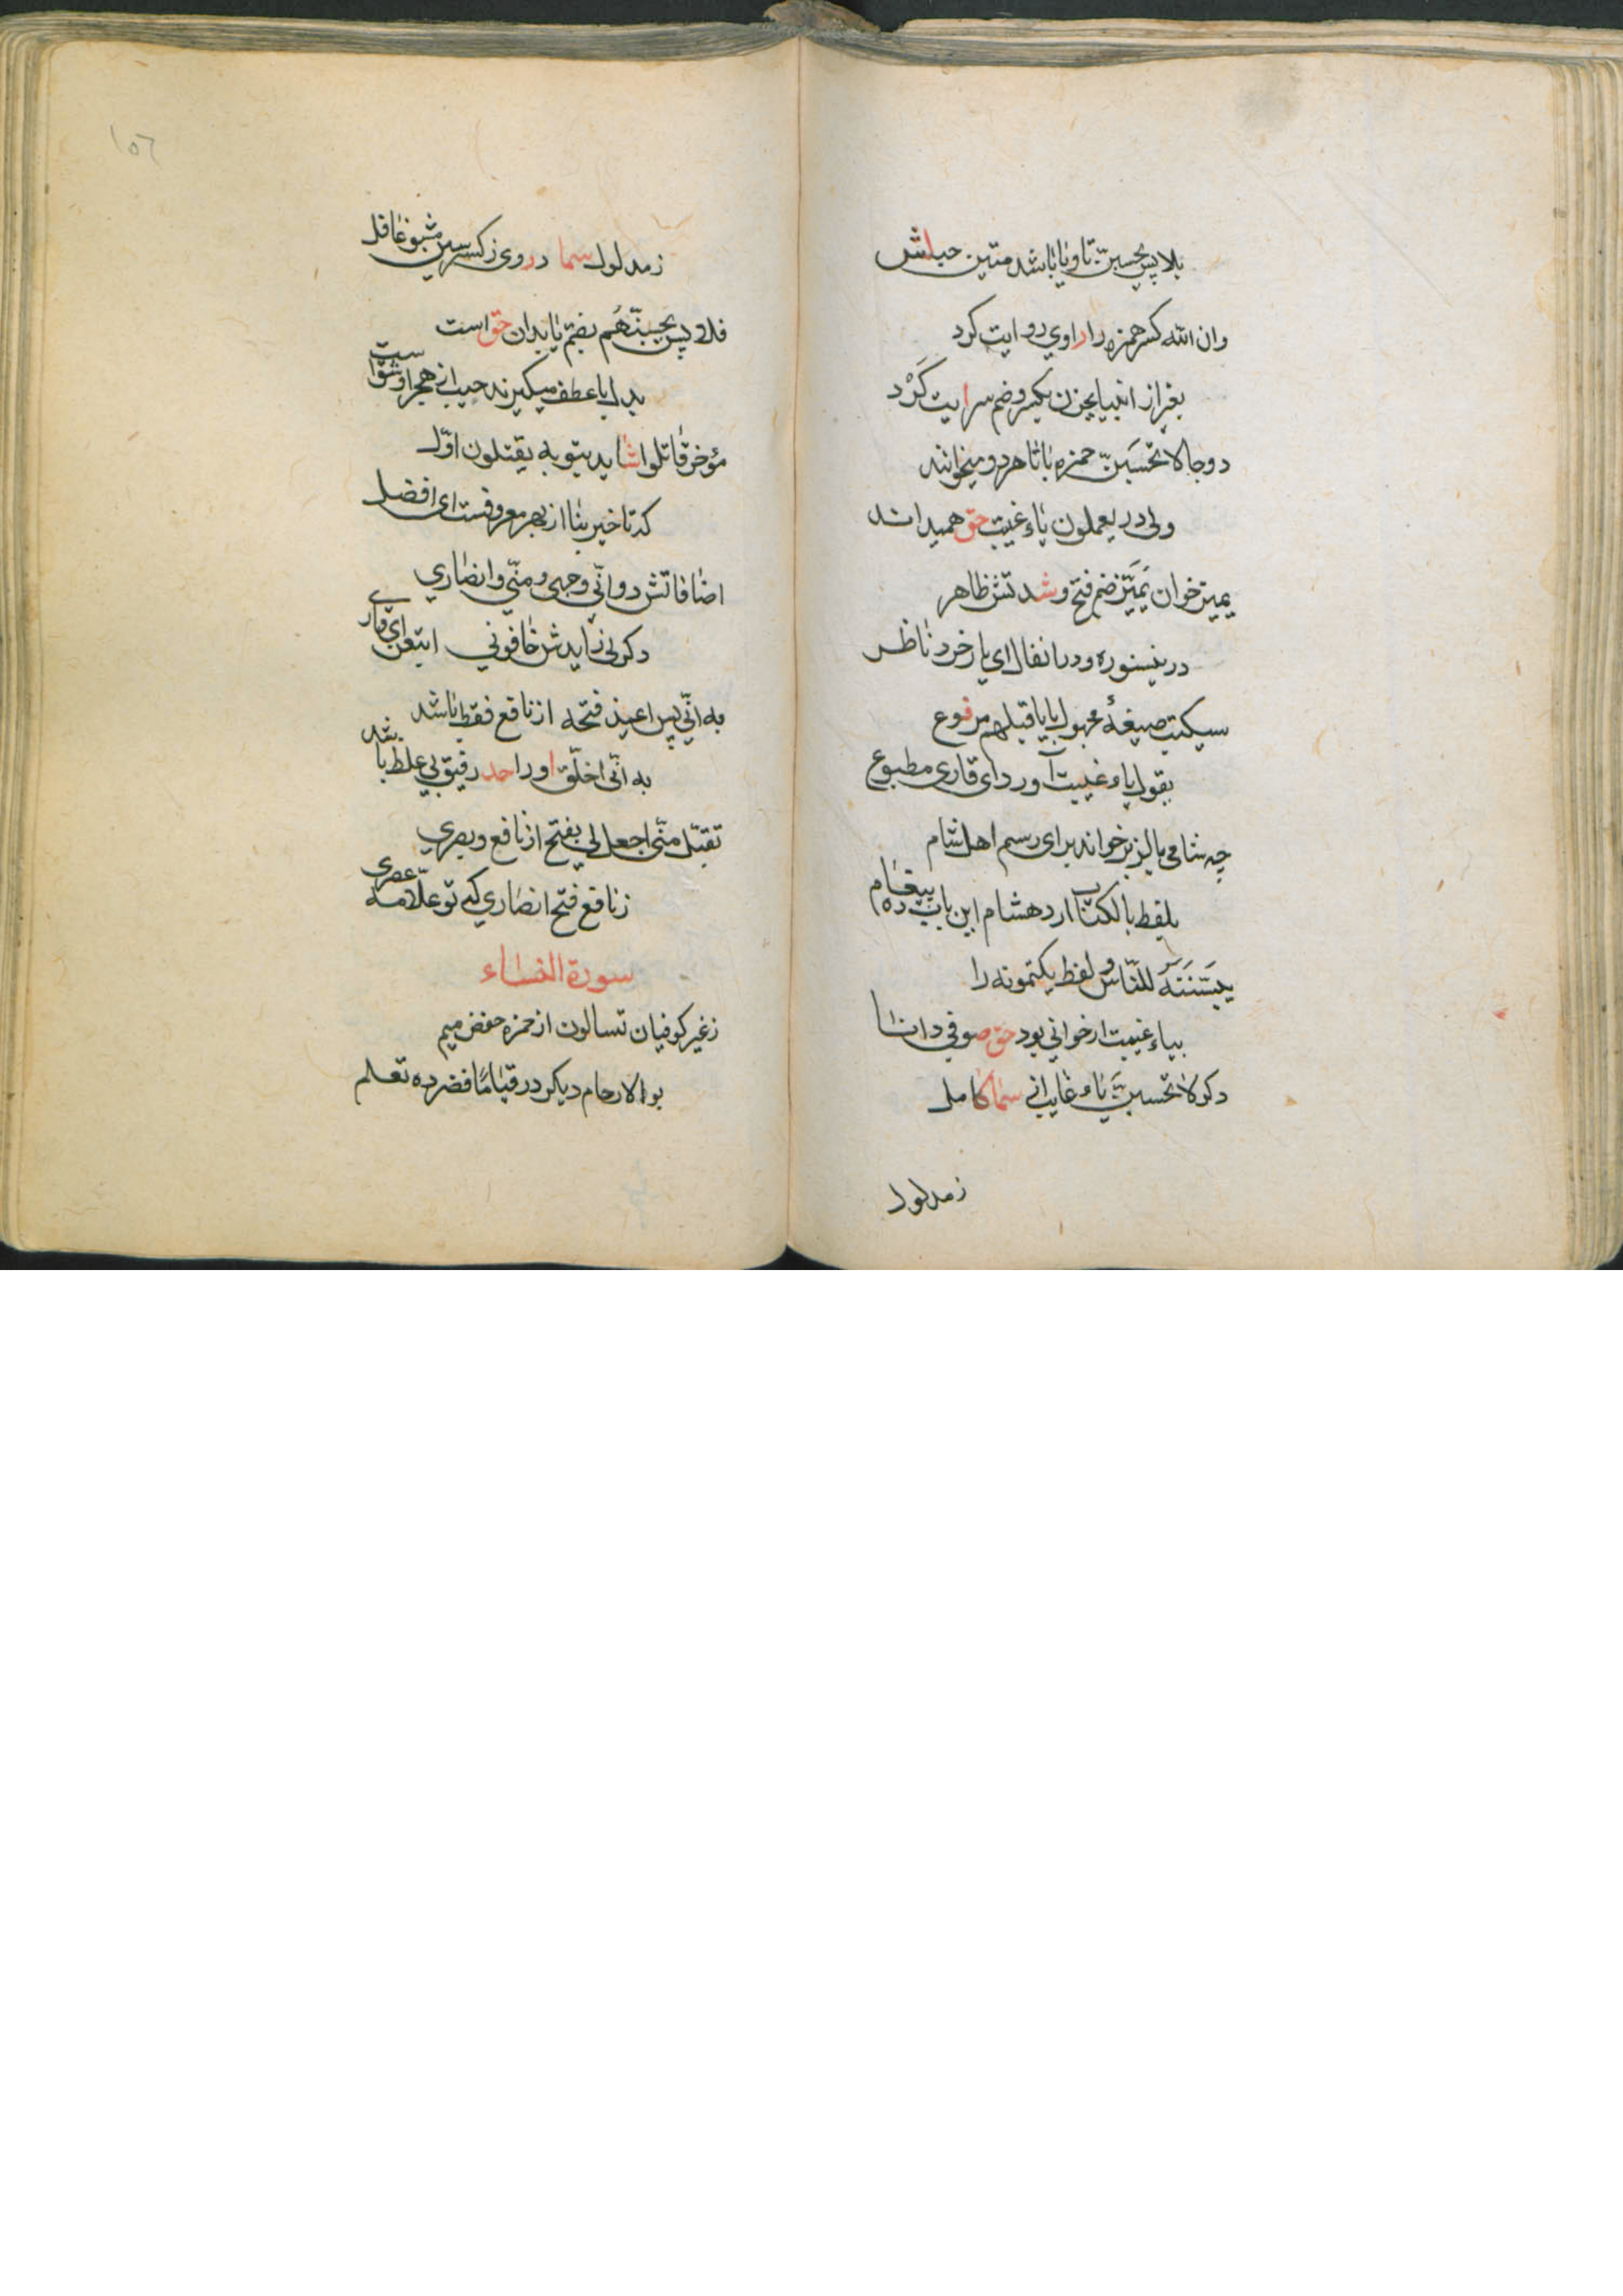 بلا پس یحسبن تا و یا باشد متین حبلش
وان الله کسر همزه را راوی روایت کرد
بغیر از انبیا یحزن بکسر و ضم سرایت کرد
دو جا لا تحسبن حمزه با تا هر دو میخواند
ولی در یعملون یاء غیبت حق همیداند
یمیز خوان یمیز ضم فتح و شد تش ظاهر
درینسوره و در انفال ای یار خرد ناظر
سیکتب صیغهٔ مجهول با یا قتلهم مرفوع
یقول یاء غیبت آورد ای قاری مطبوع
چه شامی بالزبر خواند برای رسم اهل شام
بلفظ بالکتاب ارد هشام این باب ده پیغام
یبیننه للناس و لفظ یکتمونه را
بیاء غیبت ار خوانی بود حق صوفی دانا
دکر لا تحسبن یاء غایب سما کامل
زمدلول
زمدلول سما در وی زکسر سین مشو غافل
فلا پس یحسبنهم بضم با بدان حق است
بدل یا عطف میکیرند حبیب از هجر او شوا ست
مؤخر قاتلوا شاید بتوبه یقتلون اول
که تاخیر بنا از بهر معروفست ای افضل
اضافاتش دو انی وجهی و منی و انصاری
دکر لی زایدش خافونی اتبعن ای قاری
به انی پس اعیذ فتحه از نافع فقط باشد
به انی اخلق او را حد رفیق بی غلط باشد
تقبل منی اجعل لی بفتح از نافع و بصری
زنافع فتح انصاری که تو علامه عصری
سورة النساء
زغیر کوفیان تسالون از حمزه خفض میم
بو الارحام دیکر در قیاما قصر ده تعلیم